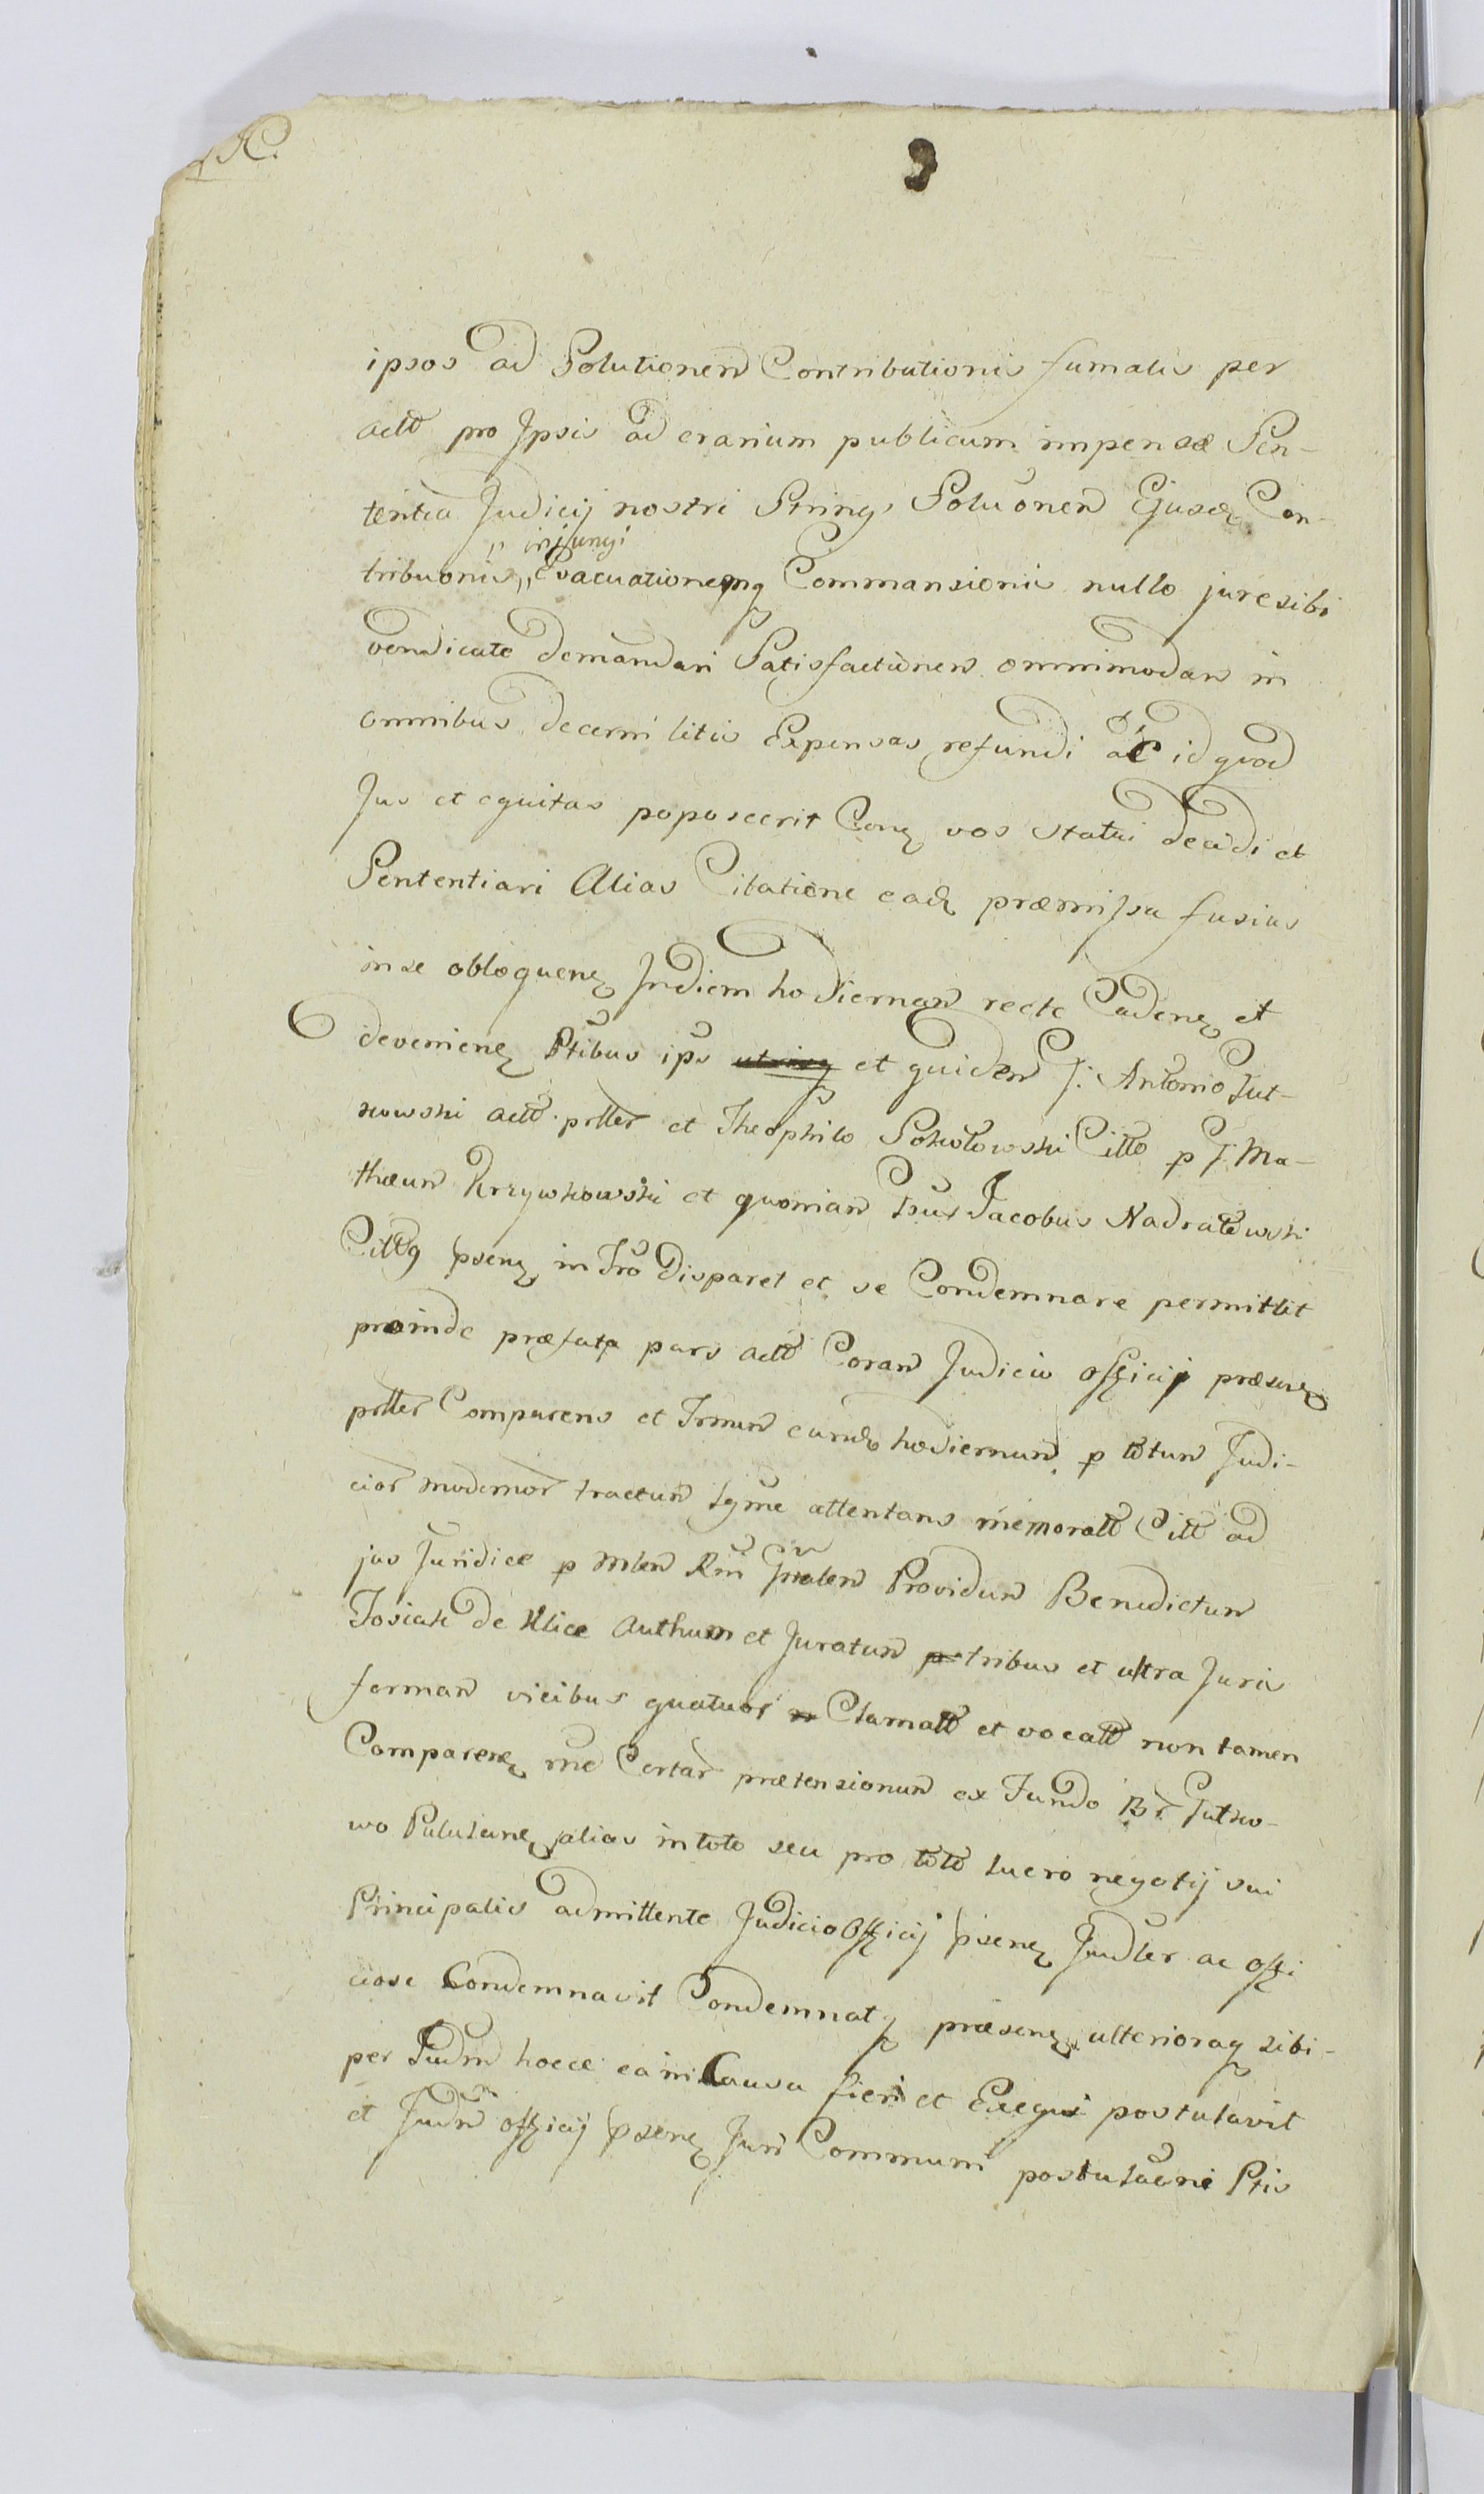 ipsos ad Solutionem Contributionis fumalis per
actō pro Ipsis ad erarium publicum impensæ Sen-
tentia Judicij nostri Stringi Soluōnem Ejusdē Con-
injungi
tribuōnis,, Evacuationemq Commansionis nullo jure sibi
vendicatæ demandari Satisfactionem omnimodam in
omnibus decerni litis Expensas refundi ac id quod
Jus et equitas poposcerit Conē vos statui decidi et
Sententiari Alias Citatione eadē præmissa fusius
in se obloquenē Indiem hodiernam recte Cadenē et
devenienē Ptibus ips utrisq et quidem G. Antonio Gut-
kowski actō prtter et Theophilo Sokołowski Citto p G. Ma-
thæum Krzywkowski et quoniam Gsus Jacobus Nadratowski
Cittq psenē in Tro disparet et se Condemnare permittit
proinde præfata pars actō Coram Judicio officij præsenē
prtter Comparens et Trmum eundē hodiernum p totum Judi-
cior modernor tractum lgme attentans memoratt Citt ad
jus Juridice p Mlem Rni Gnalem Providum Benedictum
Tosiak de Klice Authum et Juratum tribus et ultra Juris
formam vicibus quatuor Clamatt et vocatt non tamen
Comparenē rne Certar prætensionum ex Fundo Br Gutko-
wo Pululanē alias in toto seu pro toto lucro negotij sui
Principalis admittente Judicio Officij psenē Judler ac offi
ciose Condemnavit Condemnatq præsenē ulterioraq sibi-
per Judm hocce ea in Causa fieri et Exequi postulavit
et Judm officij psenē Juri Communi postulaōni Ptis